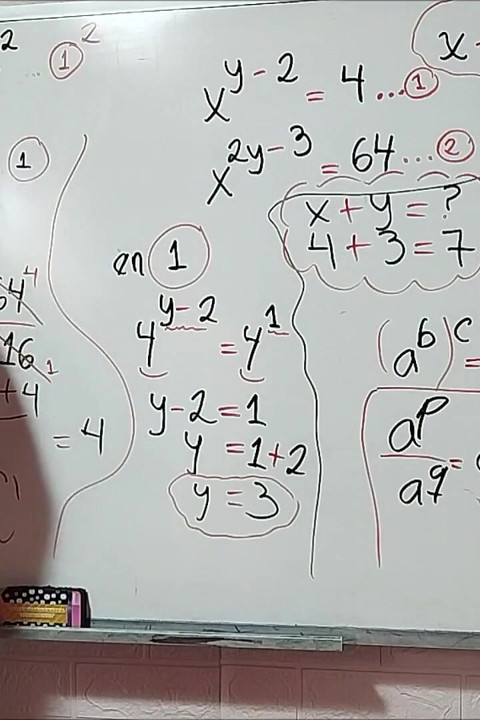 2
... ① ²
x^{y-2} = 4 ... ①
x^{2y-3} = 64 ... ②
x + y = ?
4 + 3 = 7
①
64 4
16 1
+4
= 4
en ①
4^{y-2} = 4^1
y-2 = 1
y = 1+2
y = 3
x -
(a^b)^c =
a^p
a^q =